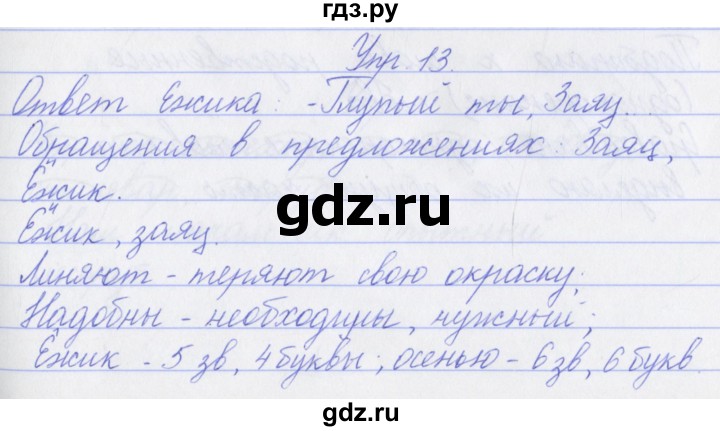 гдз.ру
Упр. 13.
Ответ Ежика: -Глупый ты, Заяц...
Обращения в предложениях: Заяц,
Ёжик.
Ёжик, заяц.
Линяют - теряют свою окраску;
Надобны - необходимы, нужный;
Ёжик - 5 зв, 4 буквы; осенью - 6 зв, 6 букв.
gdz.ru
gdz.ru